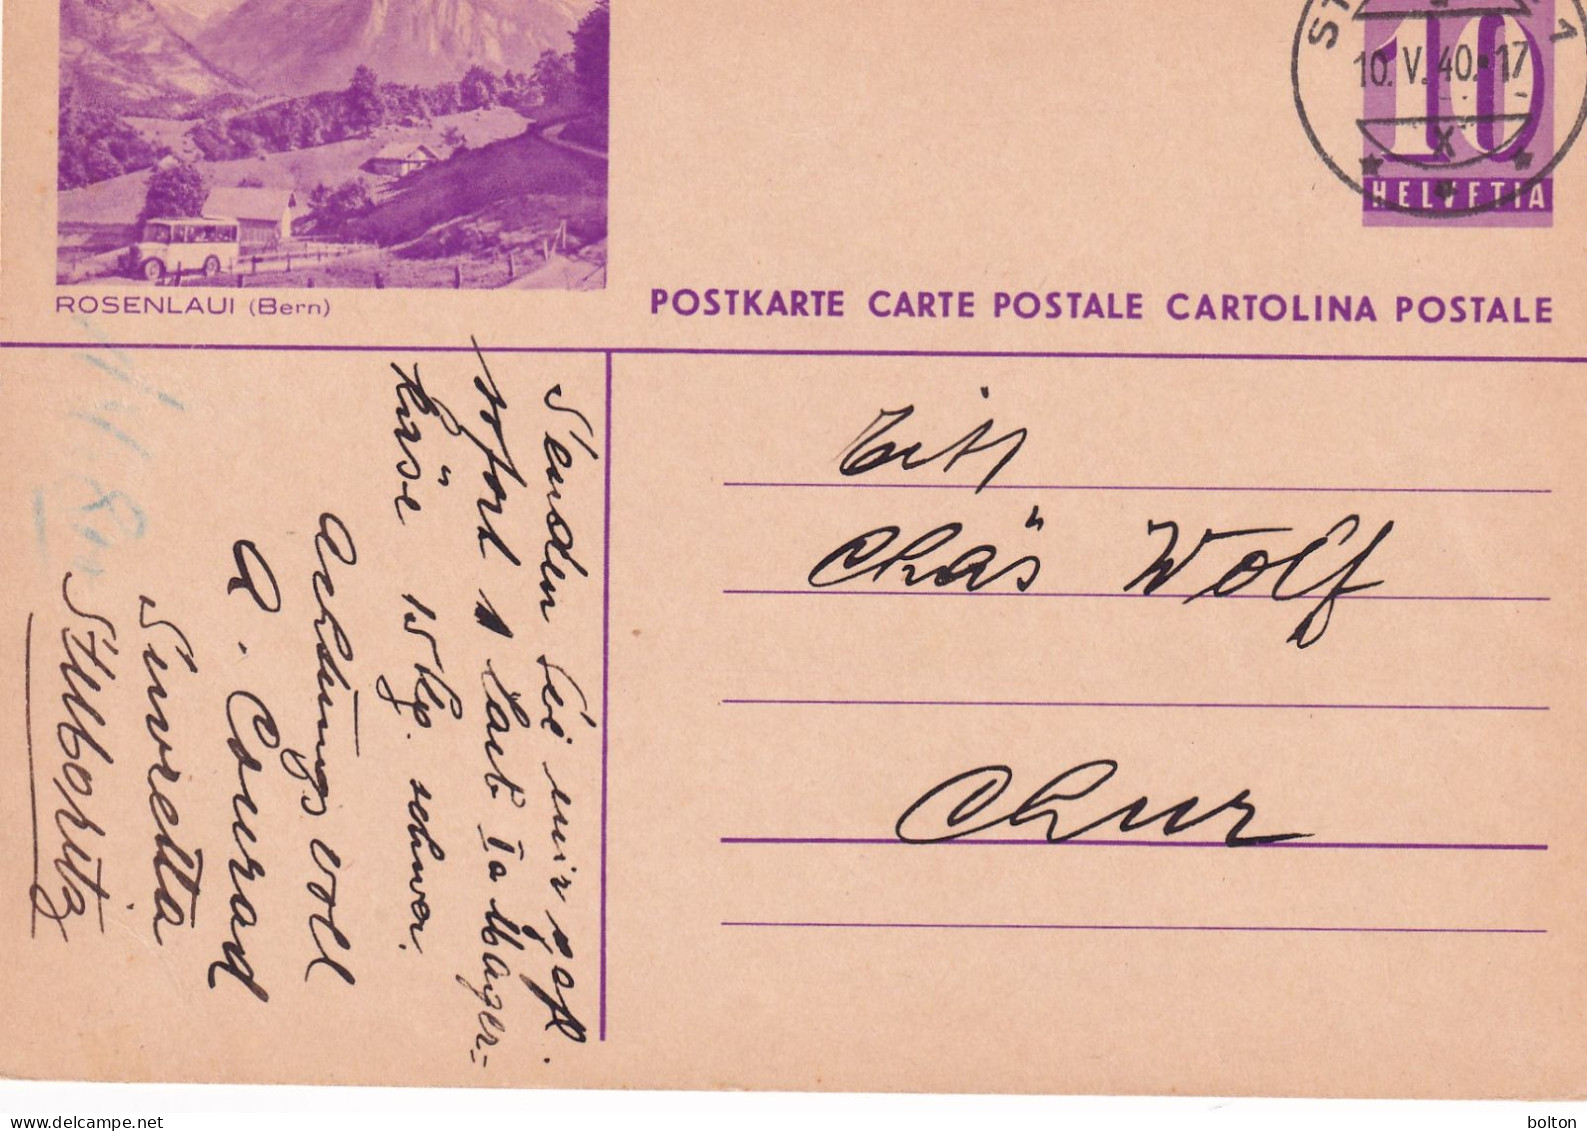 10. V. 40.-17
10
x
HELVETIA
ROSENLAUI (Bern)
POSTKARTE CARTE POSTALE CARTOLINA POSTALE
Senden Sie mir gefl.
sofort 1 Laib Ia Mager=
käse 15 Kg. schwer.
Achtungsvoll
A. Conrad
Suvretta
St. Moritz
Tit
Chäs Wolf
Chur
delcampe.net
bolton